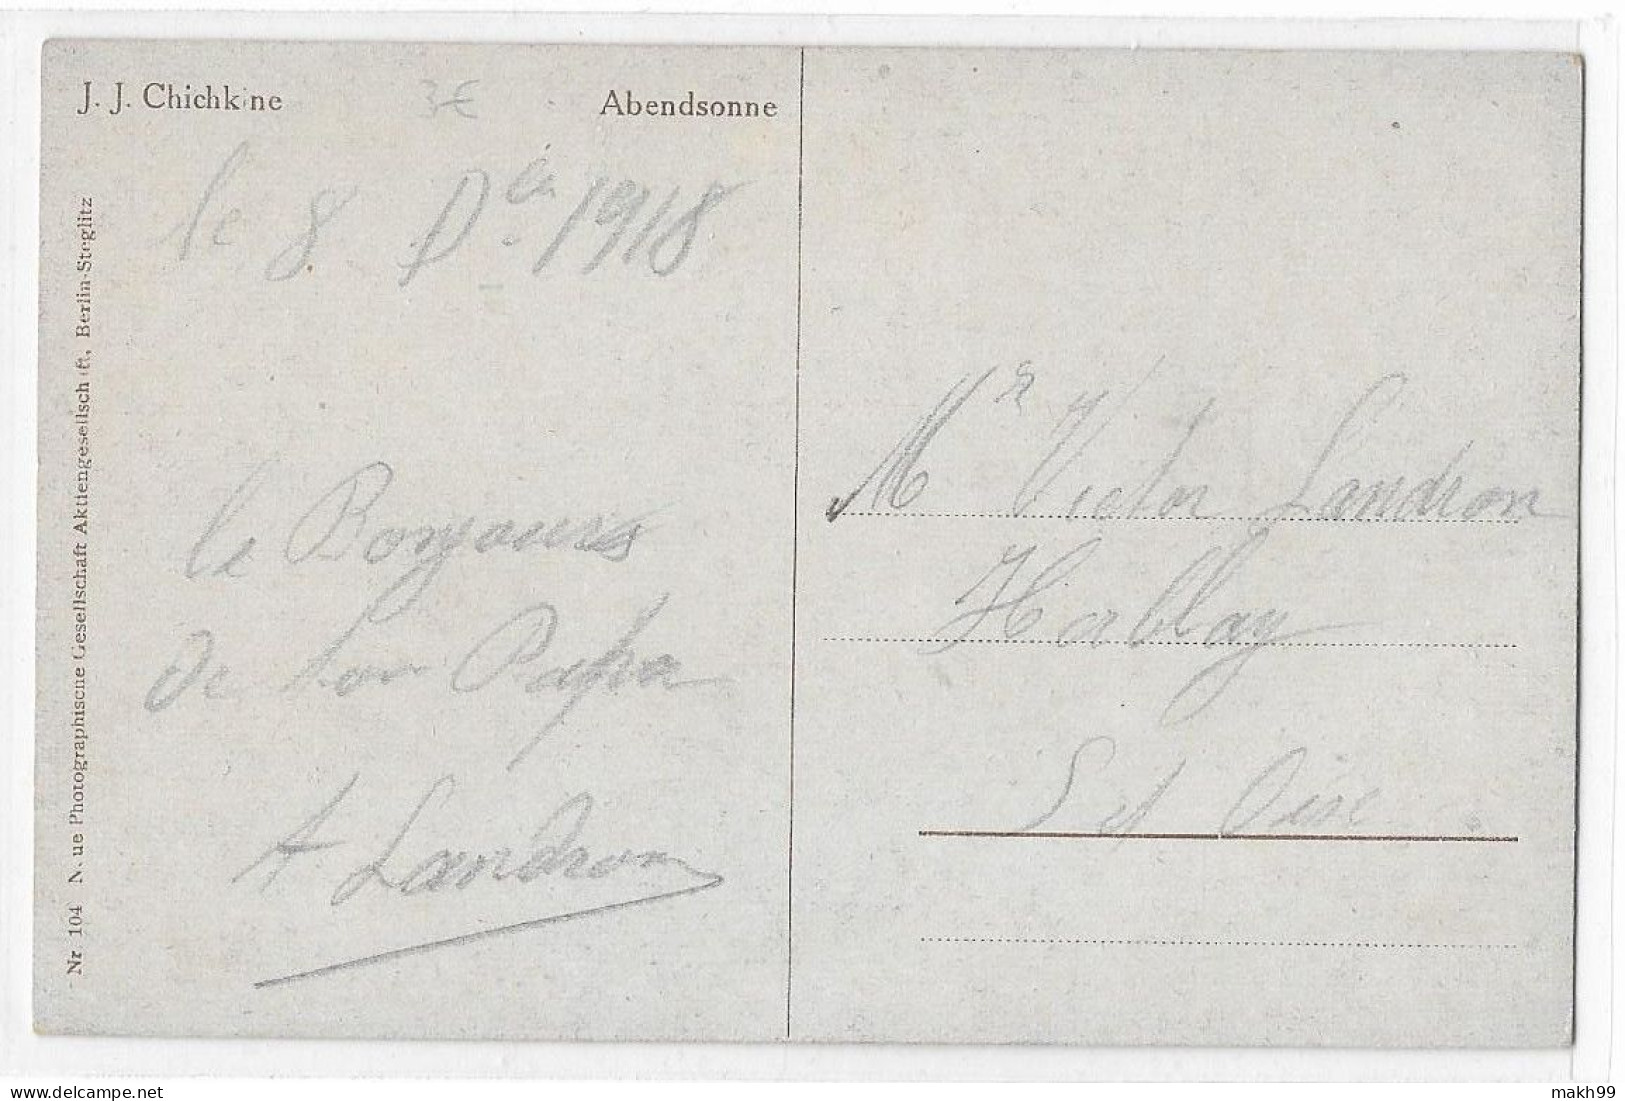 J. J. Chichkine
3€
Abendsonne
le 8 Dbre 1918
le Bonjours
de ton Papa
A Landron
Nr 104 Neue Photographische Gesellschaft Aktiengesellschaft, Berlin-Steglitz
Mr Victor Landron
Hablay
S et Oise
makh99